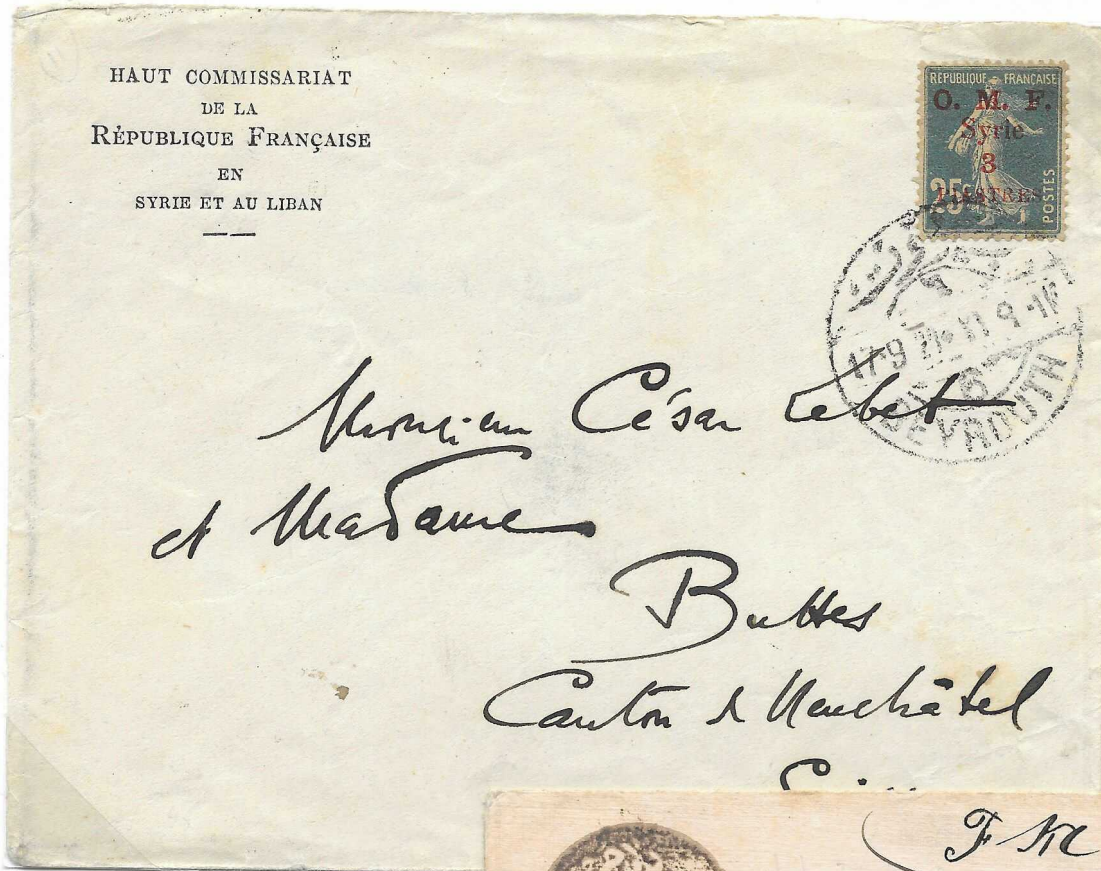 HAUT COMMISSARIAT
DE LA
RÉPUBLIQUE FRANÇAISE
EN
SYRIE ET AU LIBAN
RÉPUBLIQUE FRANÇAISE
O. M. F.
Syrie
3
PIASTRES
25c
POSTES
BEYROUTH
6
Monsieur César Lebet
et Madame
Buttes
Canton de Neuchâtel